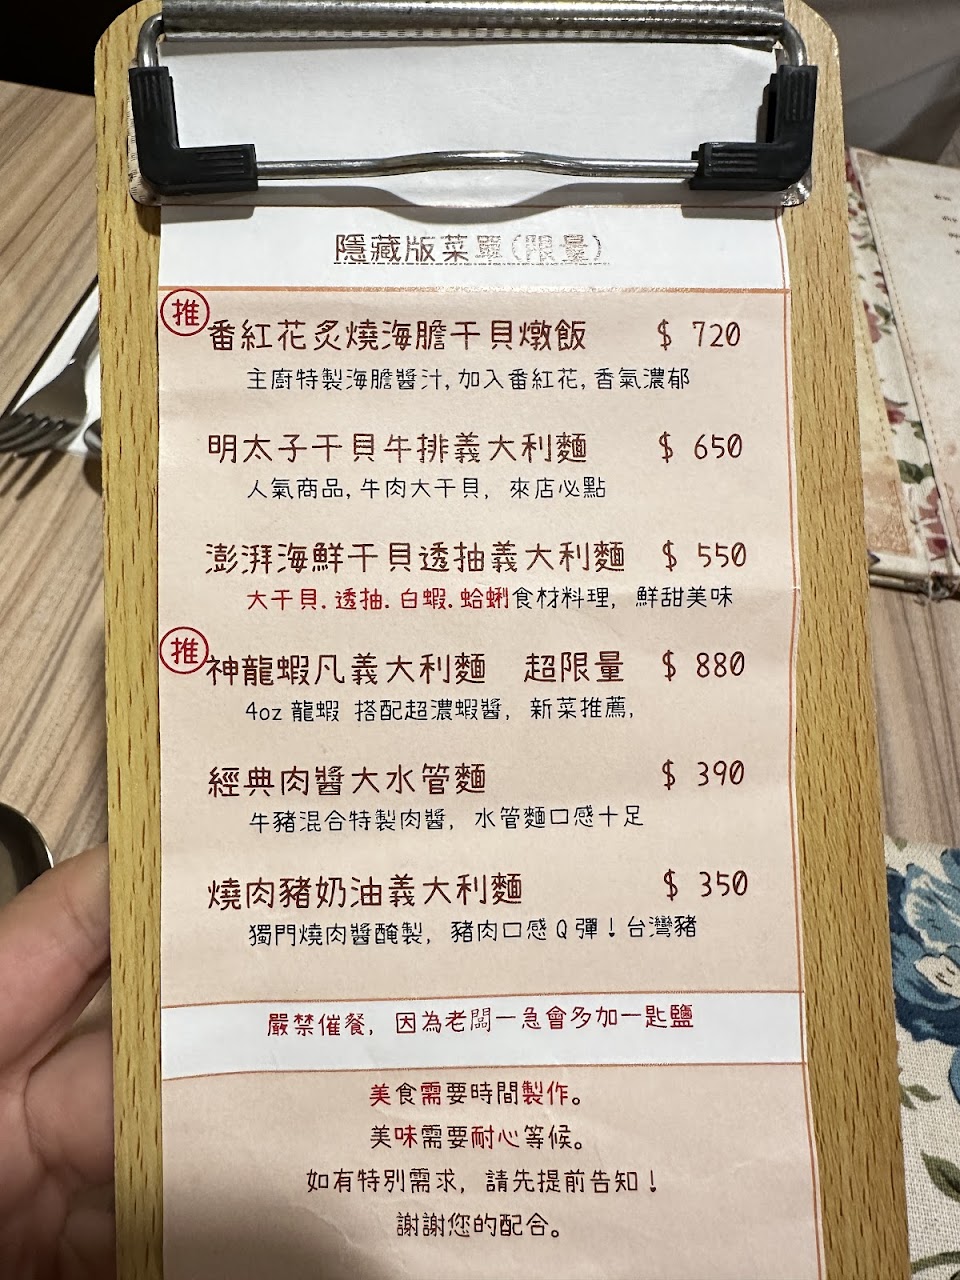 隱藏版菜單(限量)
推
番紅花炙燒海膽干貝燉飯 $ 720
主廚特製海膽醬汁,加入番紅花,香氣濃郁
明太子干貝牛排義大利麵 $ 650
人氣商品,牛肉大干貝, 來店必點
澎湃海鮮干貝透抽義大利麵 $ 550
大干貝.透抽.白蝦.蛤蜊食材料理, 鮮甜美味
推
神龍蝦凡義大利麵 超限量 $ 880
4oz 龍蝦 搭配超濃蝦醬, 新菜推薦,
經典肉醬大水管麵 $ 390
牛豬混合特製肉醬, 水管麵口感十足
燒肉豬奶油義大利麵 $ 350
獨門燒肉醬醃製, 豬肉口感Q彈!台灣豬
嚴禁催餐, 因為老闆一急會多加一匙鹽
美食需要時間製作。
美味需要耐心等候。
如有特別需求, 請先提前告知!
謝謝您的配合。